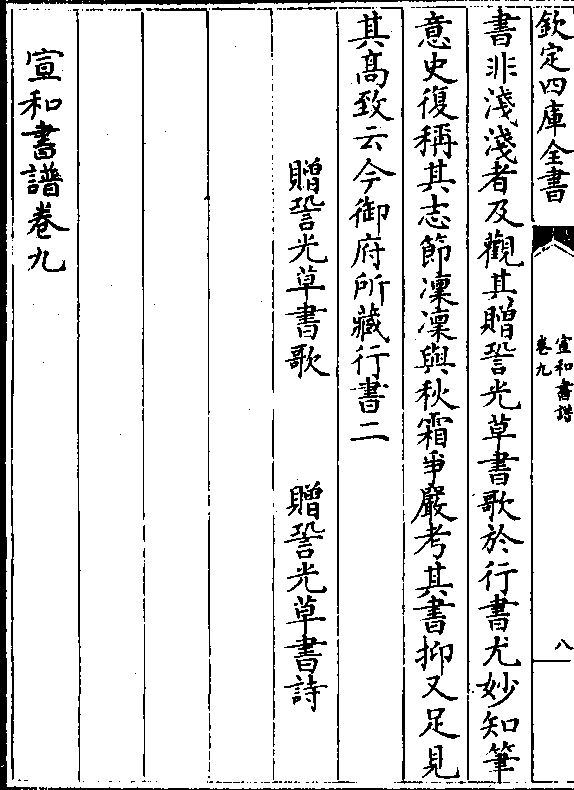 欽定四庫全書
宣和書譜
卷九
八
書非淺淺者及觀其贈㗻光草書歌於行書尤妙知筆
意史復稱其志節凜凜與秋霜爭嚴考其書抑又足見
其髙致云今御府所藏行書二
贈㗻光草書歌
贈㗻光草書詩
宣和書譜卷九